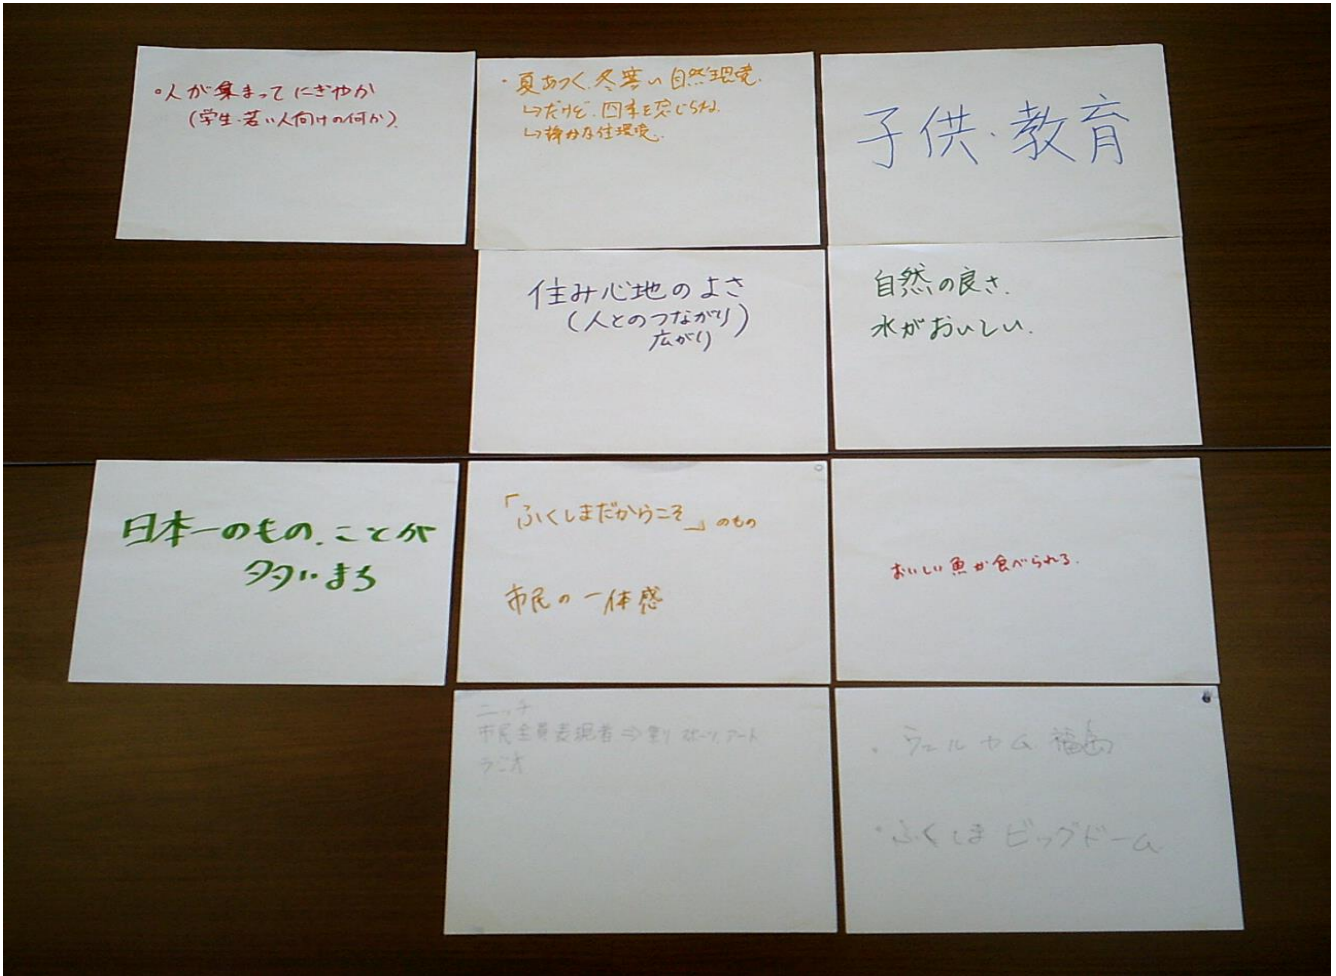 ・人が集まってにぎやか
(学生・若い人向けの何か)
・夏あつく、冬寒い自然環境.
↳だけど、四季を感じられる
↳静かな住環境.
子供・教育
住み心地のよさ
(人とのつながり)
広がり
自然の良さ.
水がおいしい.
日本一のもの、ことが
多いまち
「ふくしまだからこそ」のもの
市民の一体感
おいしい魚が食べられる.
ニッチ
市民全員表現者⇒ スポーツ、アート
ラジオ
・ウェルカム 福島
・ふくしま ビッグドーム